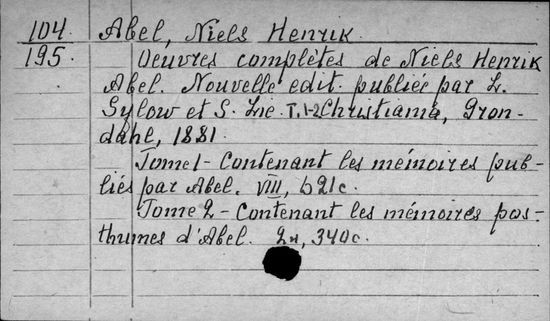 104. Abel, Niels Henrik
195. Oeuvres complètes de Niels Henrik
Abel. Nouvelle edit. publiée par L.
Sylow et S. Lie. T. 1-2 Christiania, Gron-
dahl, 1881.
Tome 1 - Contenant les mémoires pub-
liés par Abel. VIII, 621c.
Tome 2 - Contenant les mémoires pos-
thumes d'Abel. 340c.